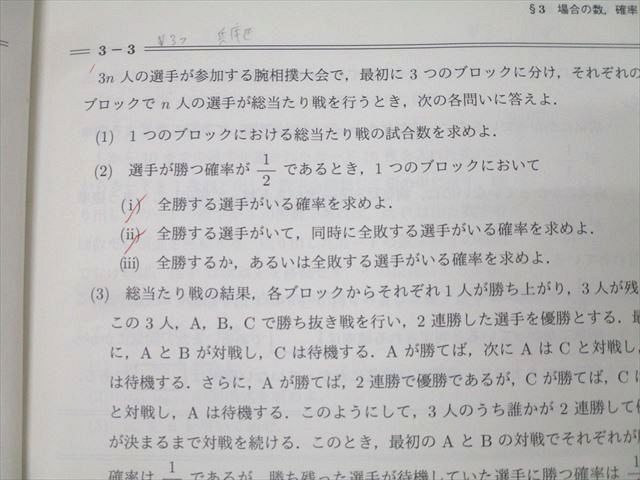 §3 場合の数，確率
3－3
3n 人の選手が参加する腕相撲大会で，最初に 3 つのブロックに分け，それぞれの
ブロックで n 人の選手が総当たり戦を行うとき，次の各問いに答えよ．
(1) 1 つのブロックにおける総当たり戦の試合数を求めよ．
(2) 選手が勝つ確率が 1/2 であるとき，1 つのブロックにおいて
(i) 全勝する選手がいる確率を求めよ．
(ii) 全勝する選手がいて，同時に全敗する選手がいる確率を求めよ．
(iii) 全勝するか，あるいは全敗する選手がいる確率を求めよ．
(3) 総当たり戦の結果，各ブロックからそれぞれ 1 人が勝ち上がり，3 人が残
この 3 人，A，B，C で勝ち抜き戦を行い，2 連勝した選手を優勝とする．最
に，A と B が対戦し，C は待機する．A が勝てば，次に A は C と対戦し，
は待機する．さらに，A が勝てば，2 連勝で優勝であるが，C が勝てば，C は
と対戦し，A は待機する．このようにして，3 人のうち誰かが 2 連勝して優
が決まるまで対戦を続ける．このとき，最初の A と B の対戦でそれぞれが
確率は 1 であるが，勝ち残った選手が待機していた選手に勝つ確率は 1